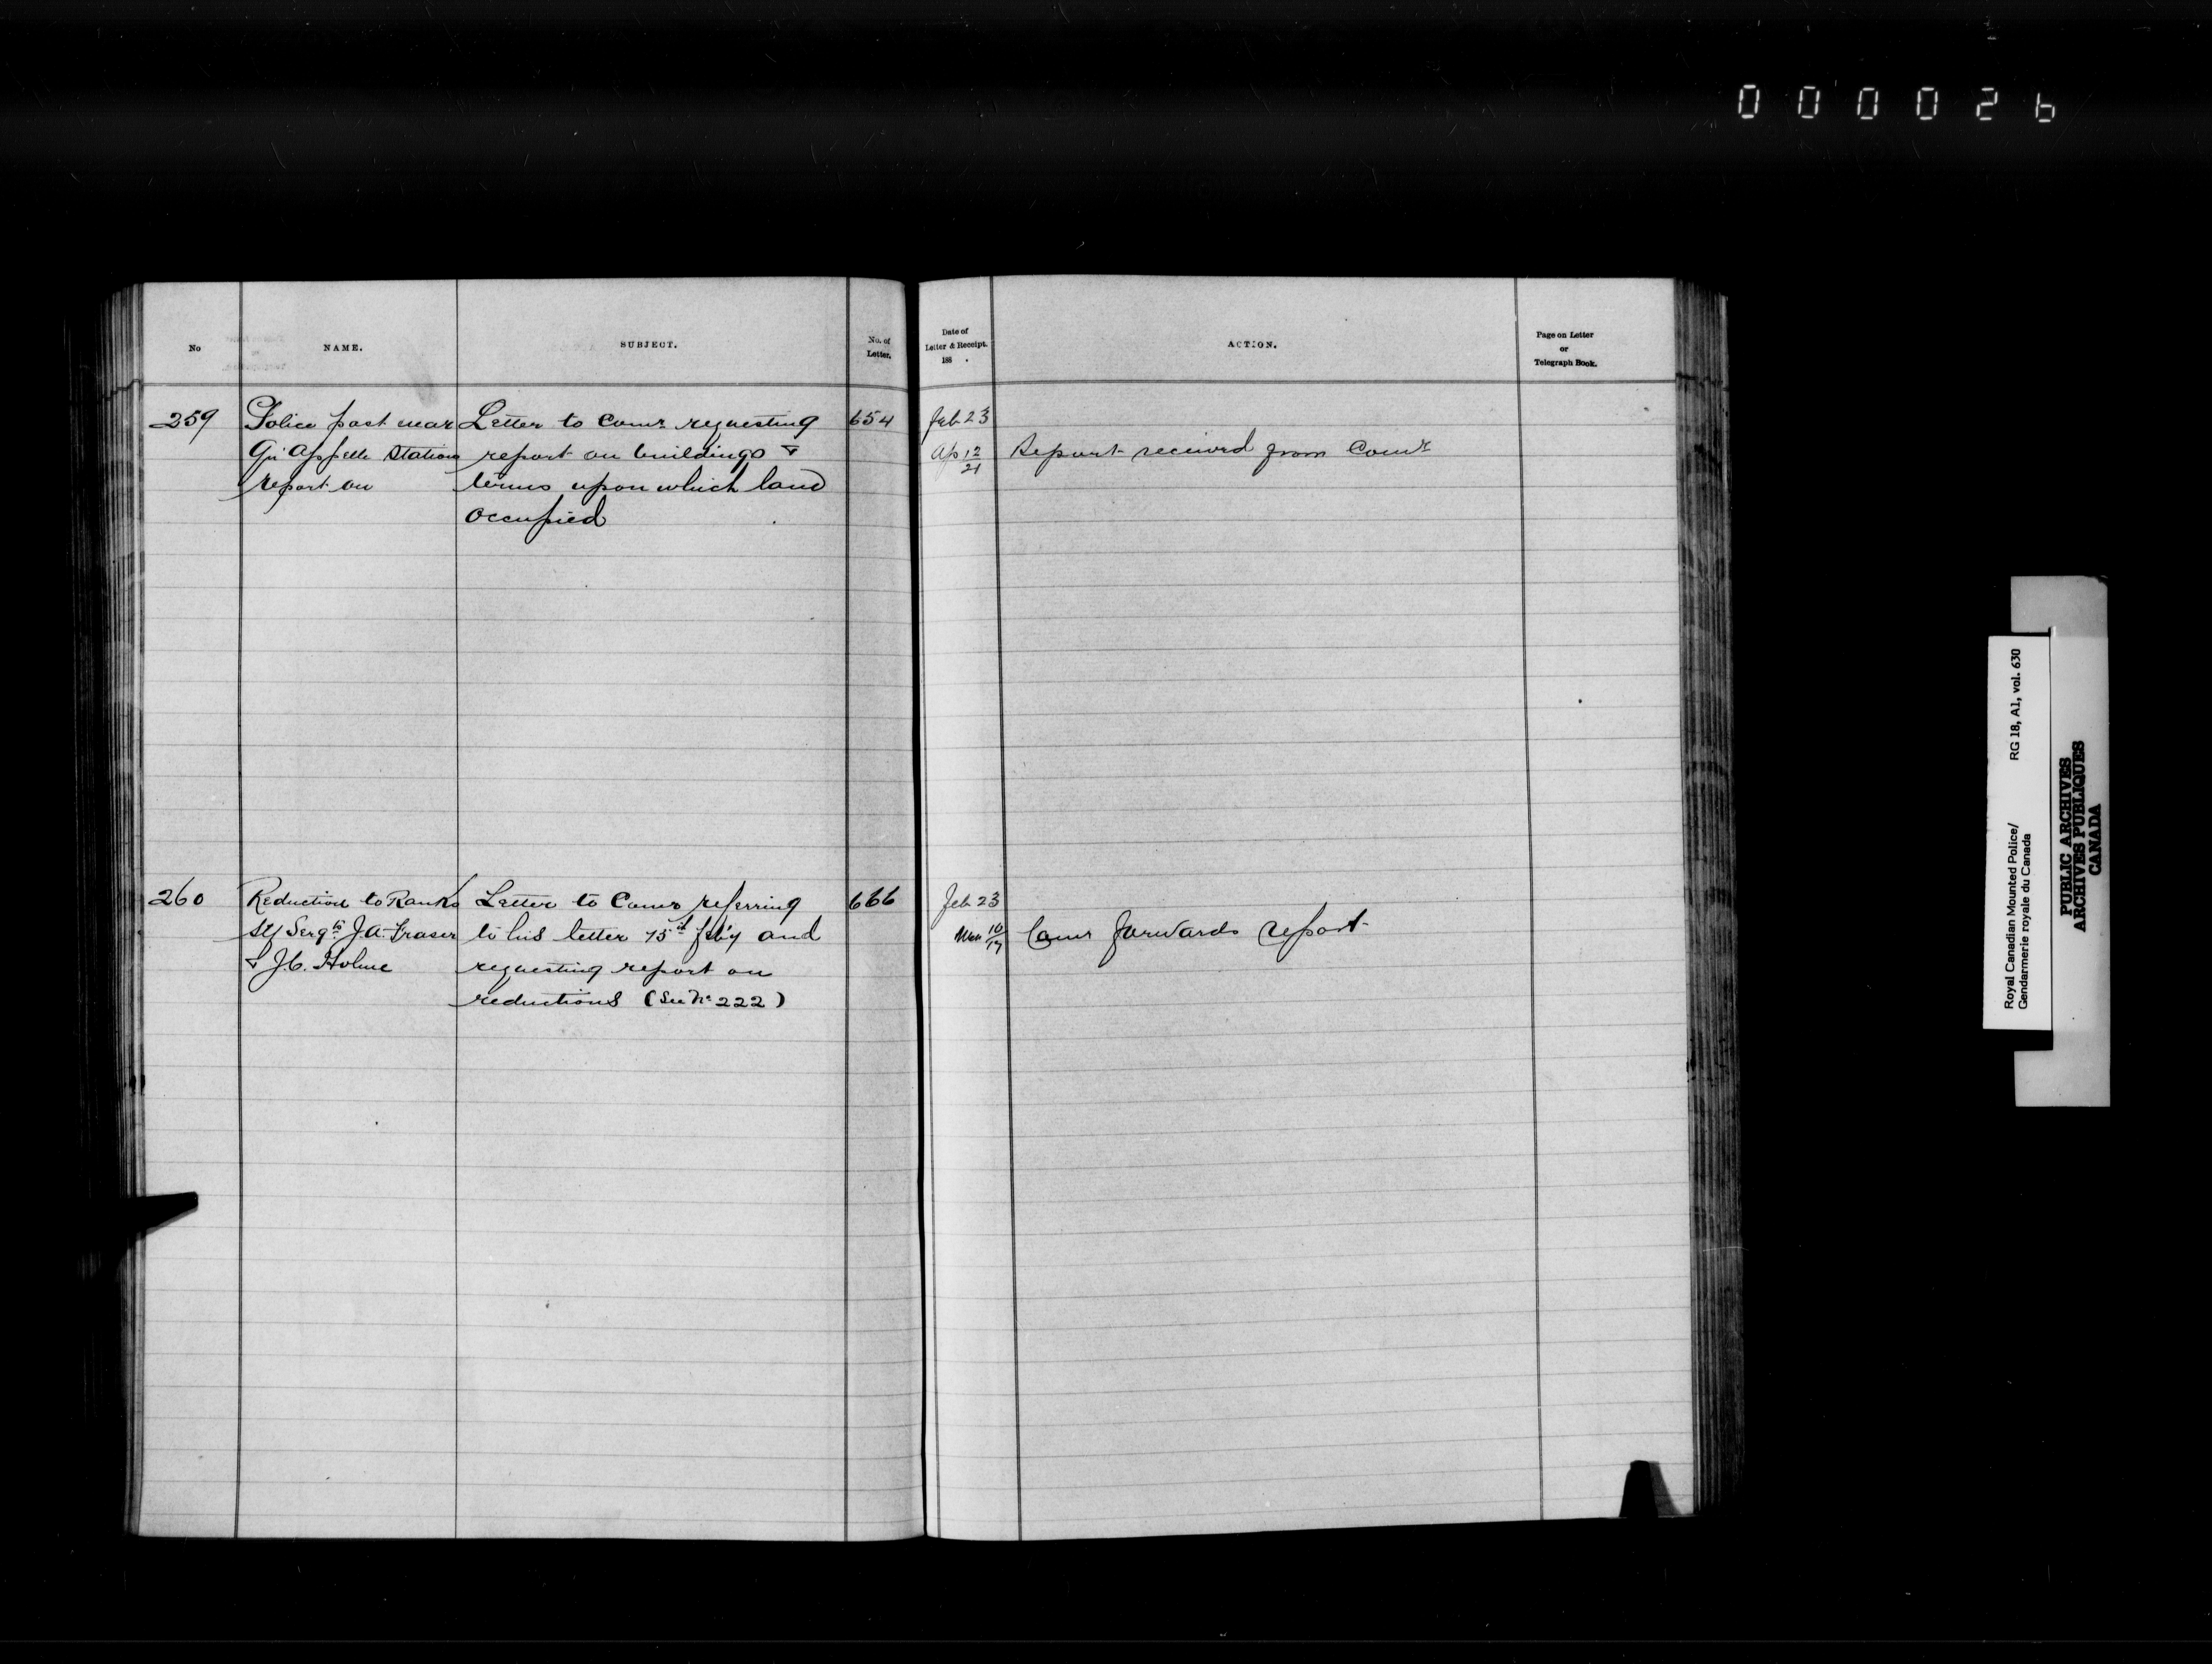 000026
No
NAME.
SUBJECT.
No. of
Letter.
Date of
Letter & Receipt.
188 .
ACTION.
Page on Letter
or
Telegraph Book.
259
Police post near
Qu'Appelle Station
report on
Letter to Comr requesting
report on buildings &
terms upon which land
occupied
654
Feb 23
Ap 12/21
Report received from Comr
260
Reduction to Ranks
Sgts J.A. Fraser
& J.C. Holme
Letter to Comr referring
to his letter 15th Feb'y and
requesting report on
reductions (See No 222)
666
Feb 23
Mar 10/17
Comr forwards report
Royal Canadian Mounted Police/
Gendarmerie royale du Canada
RG 18, A1, vol. 630
PUBLIC ARCHIVES
ARCHIVES PUBLIQUES
CANADA